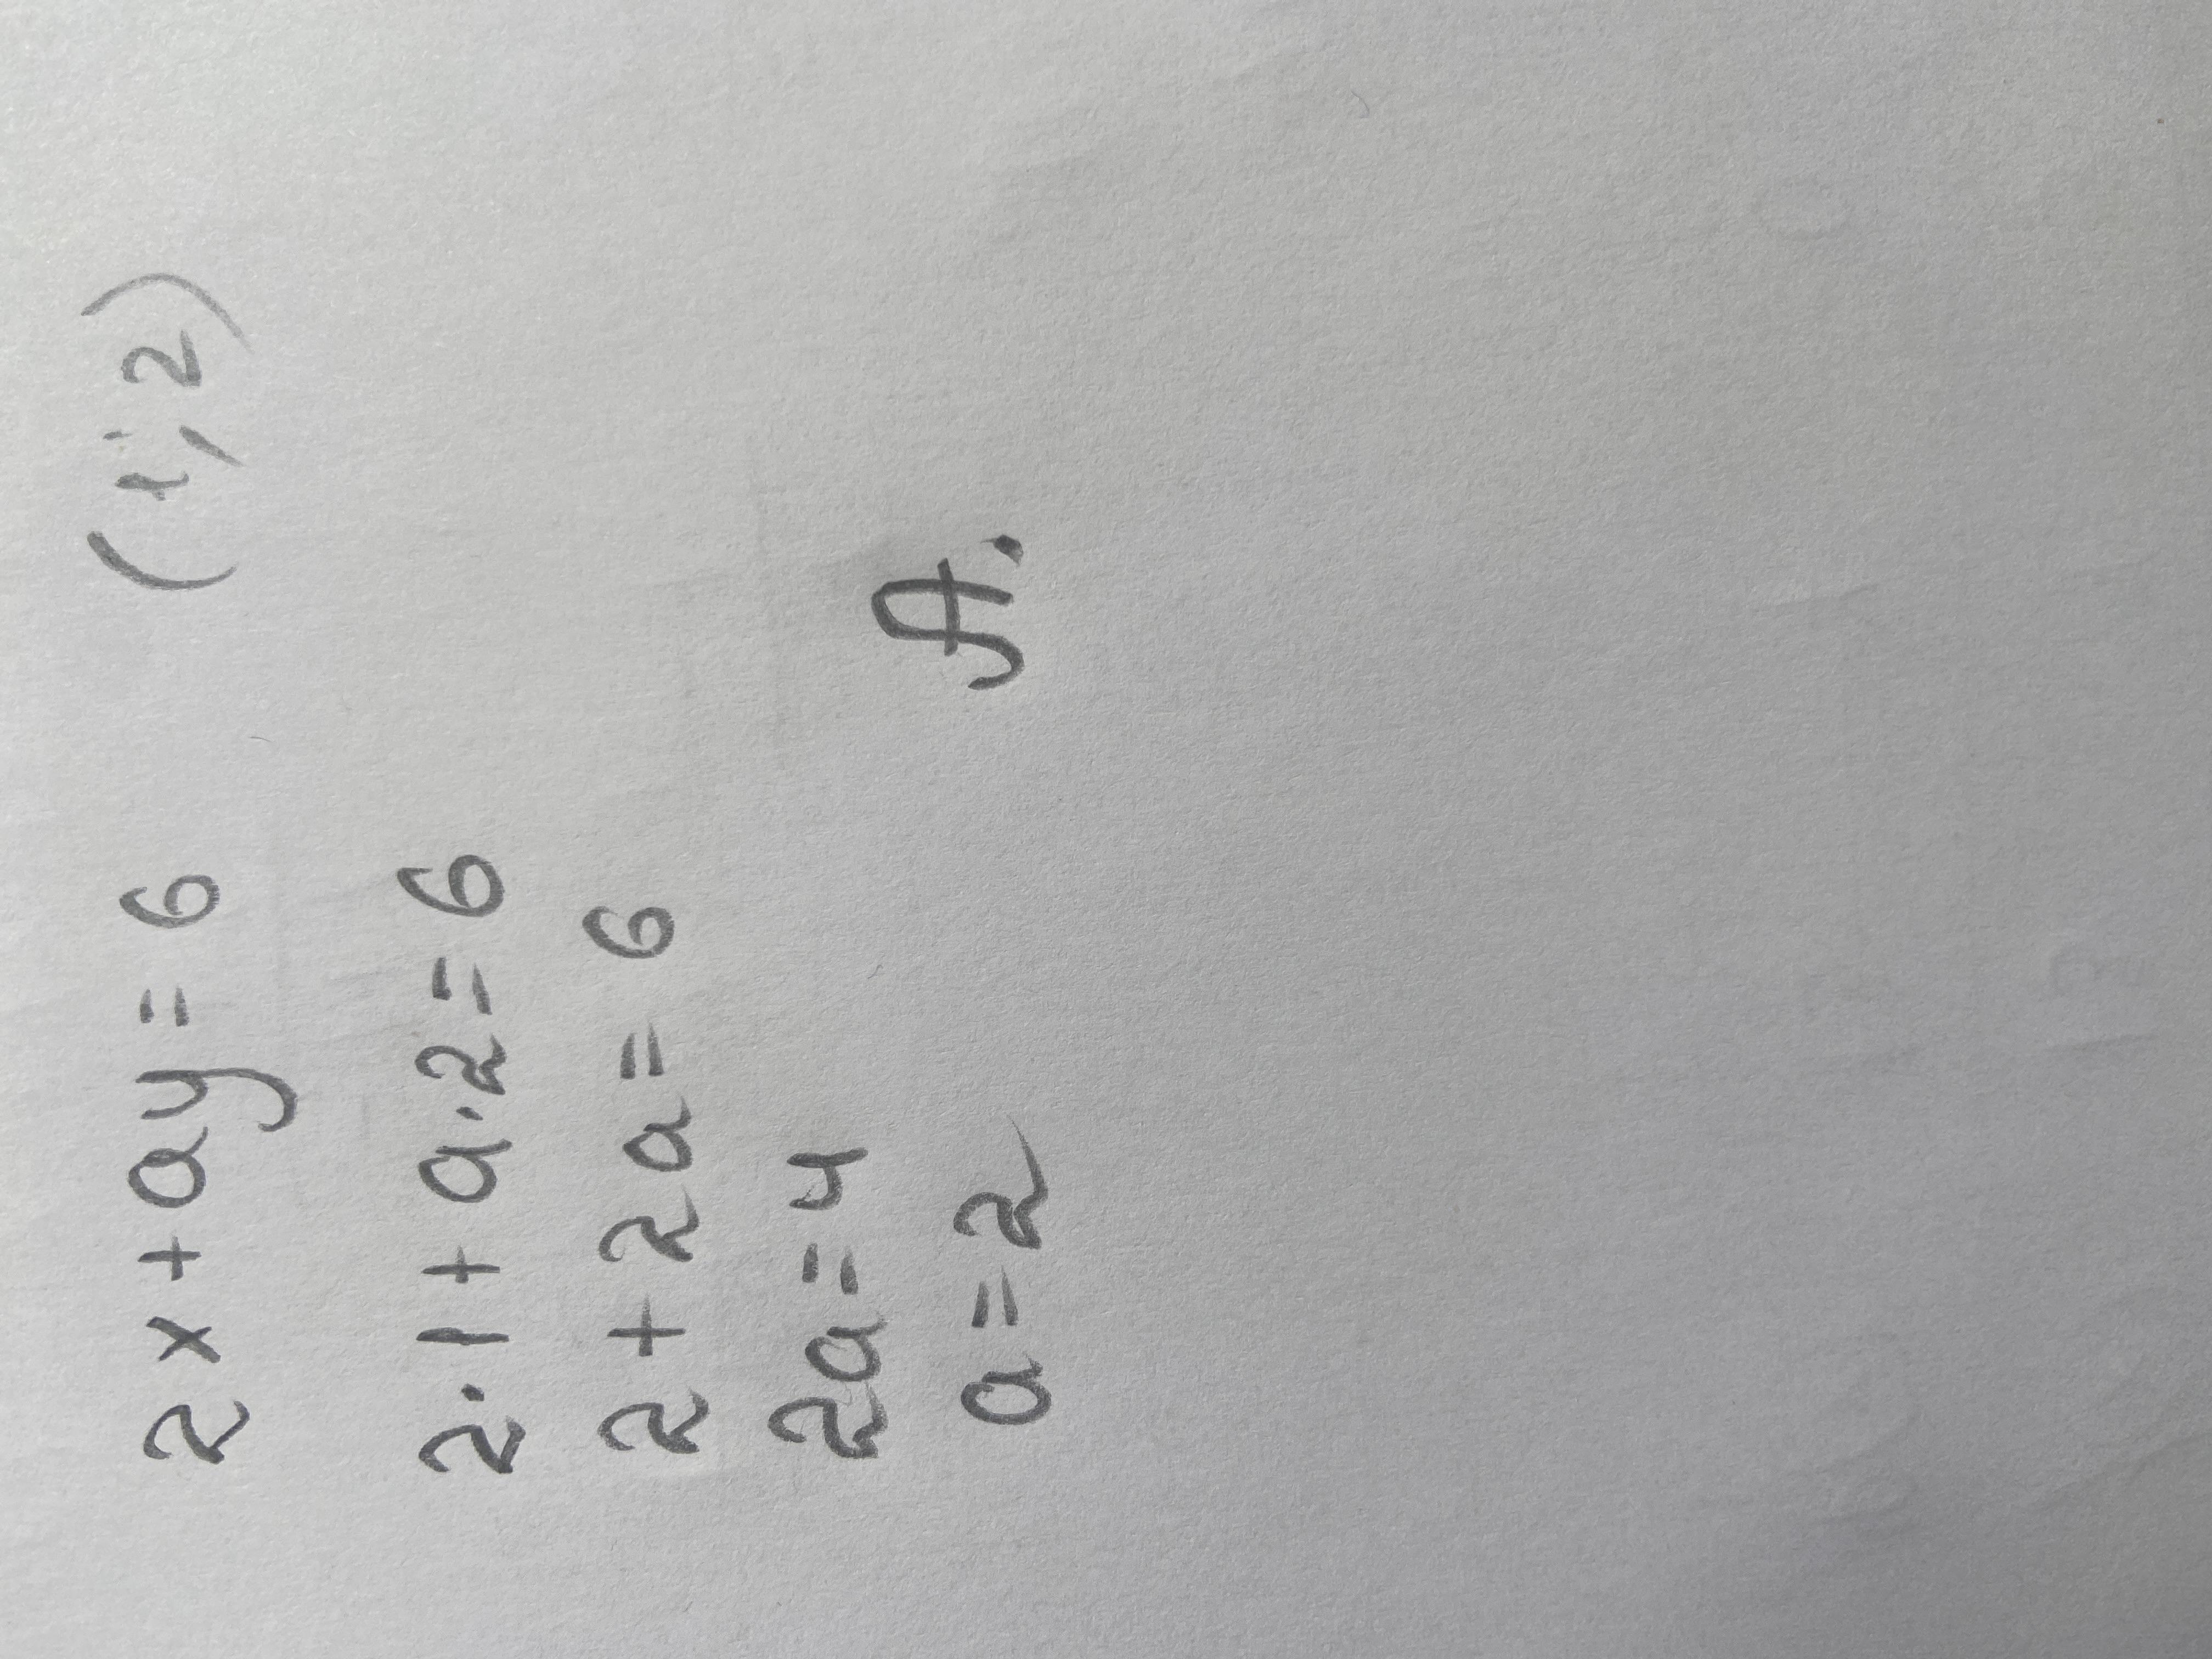 2x + ay = 6 (1; 2)
2·1 + a·2 = 6
2 + 2a = 6
2a = 4
a = 2 A.